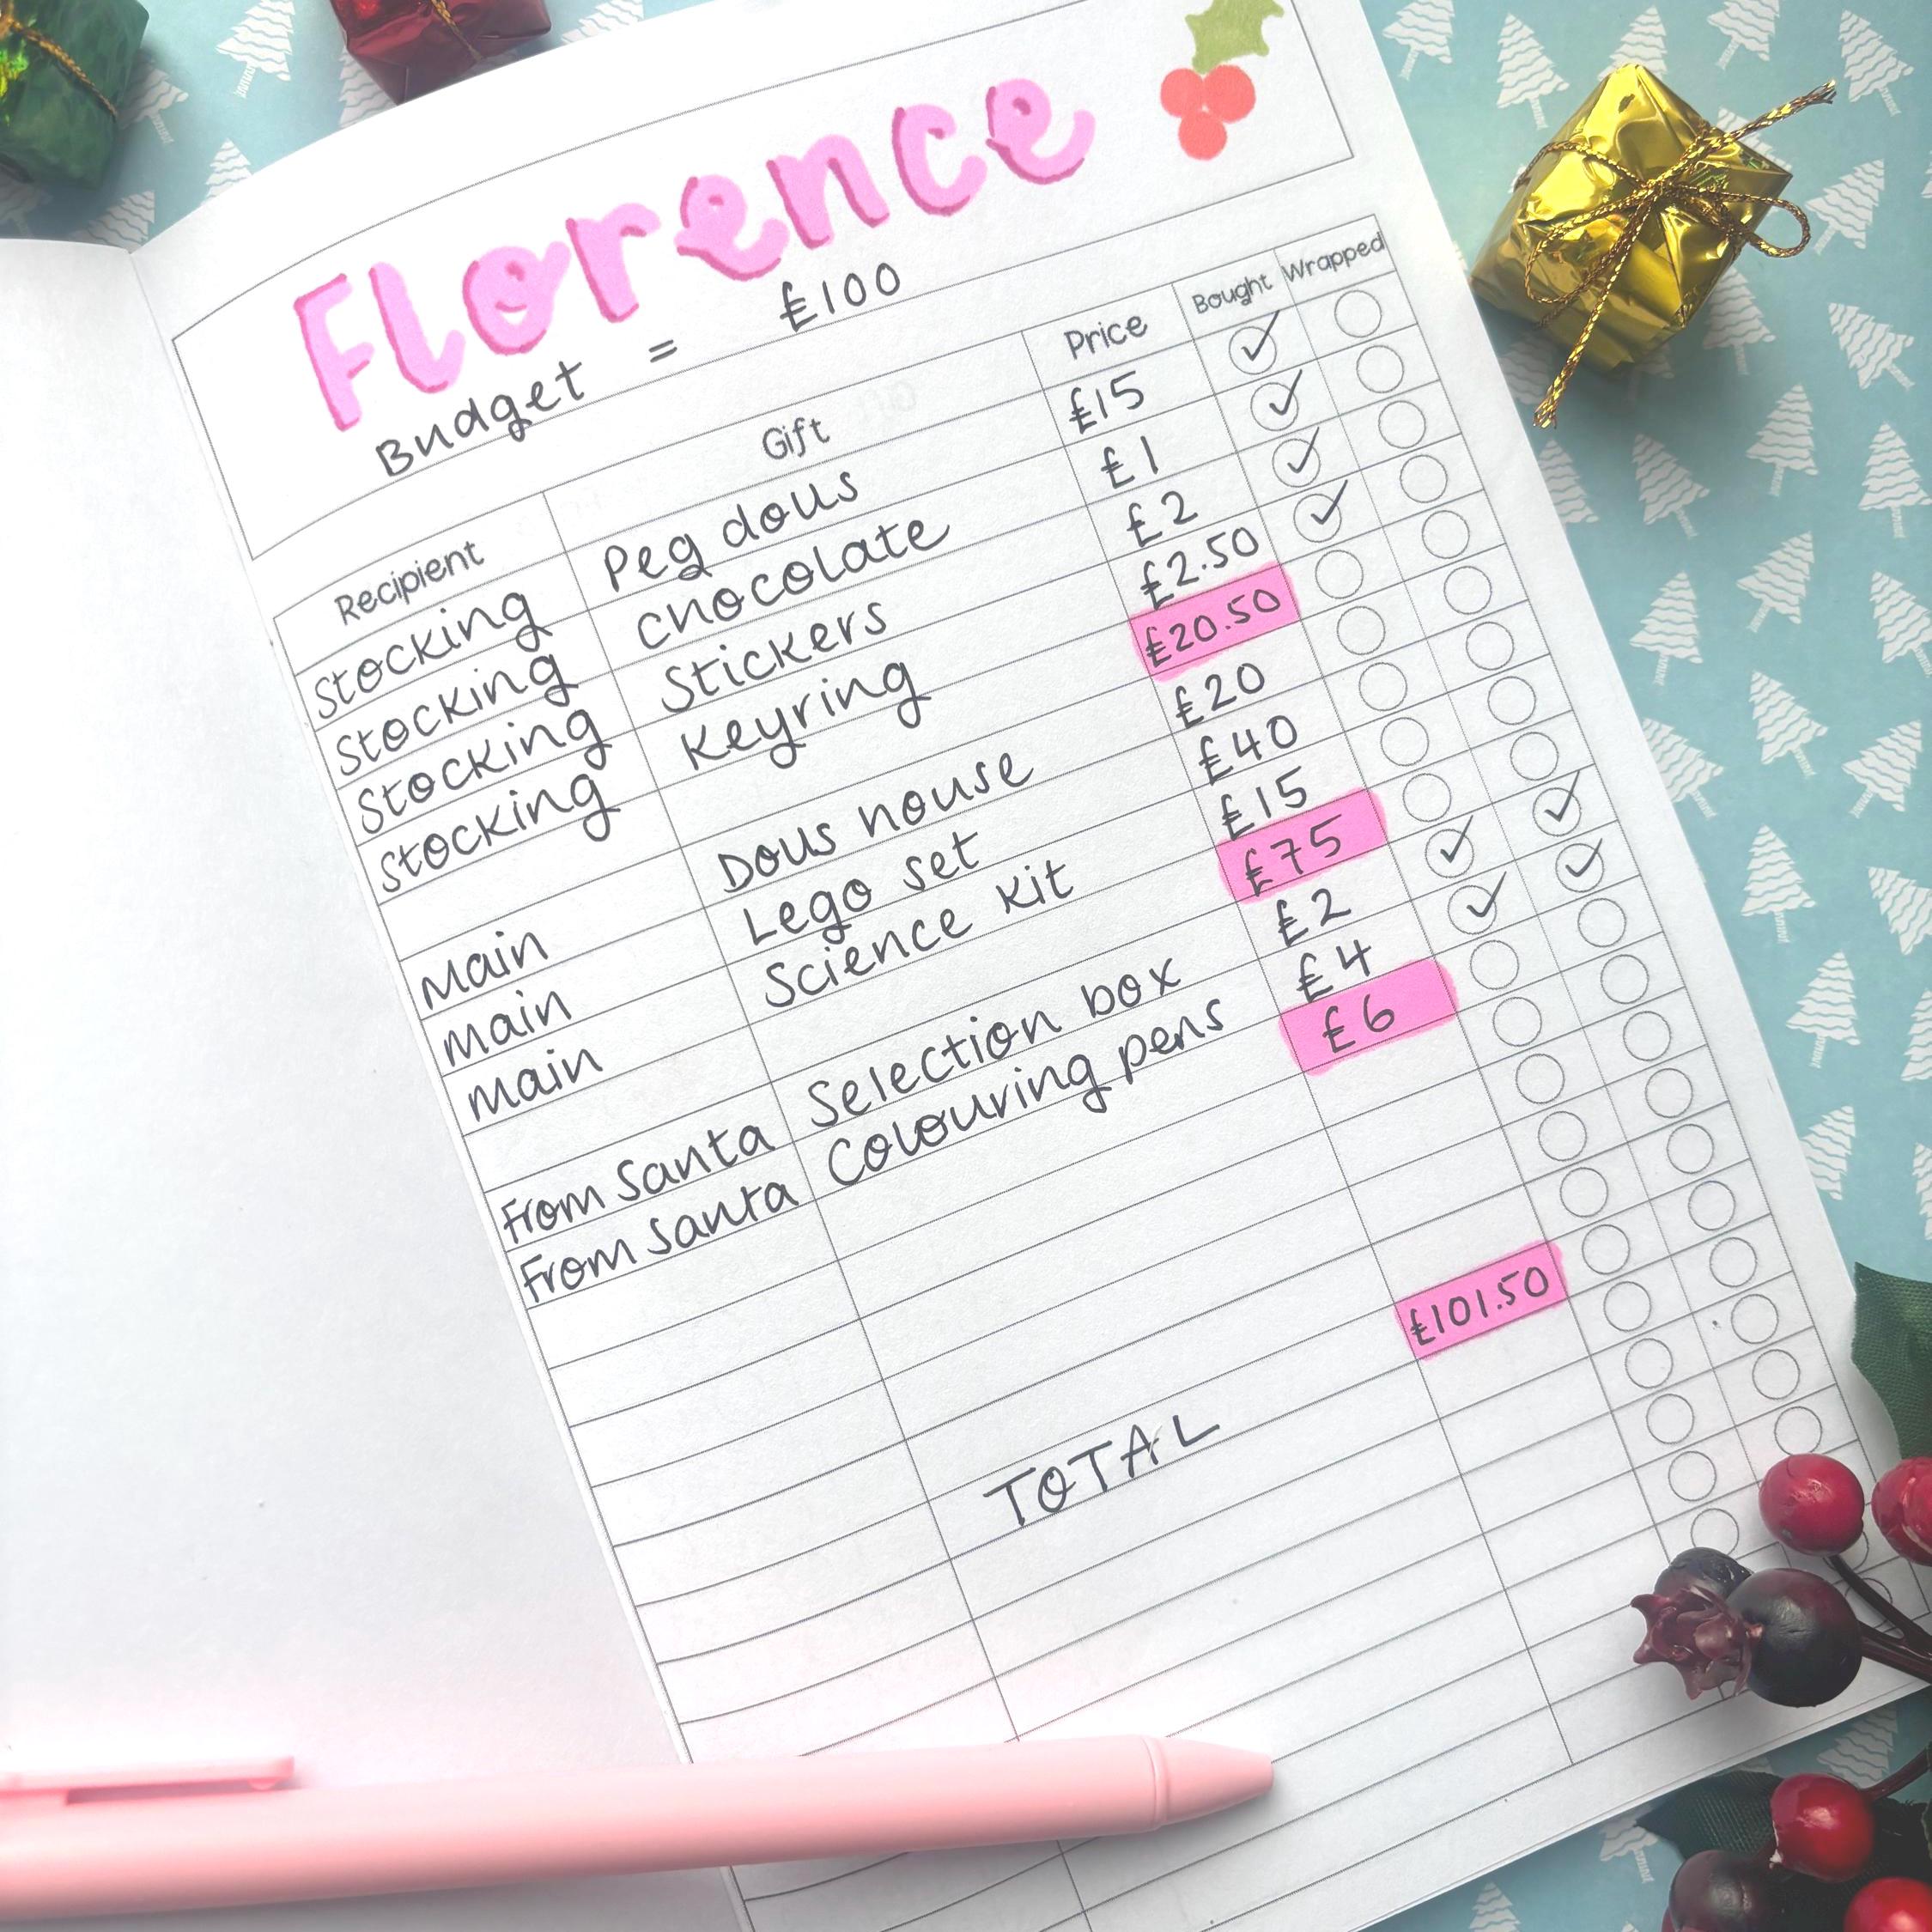 Florence
Budget = £100
Recipient Gift Price Bought Wrapped
Stocking Peg dolls £15
Stocking chocolate £1
Stocking Stickers £2
Stocking Keyring £2.50
£20.50
Main Dolls house £20
Main Lego set £40
Main Science kit £15
£75
From Santa Selection box £2
From Santa Colouring pens £4
£6
TOTAL £101.50